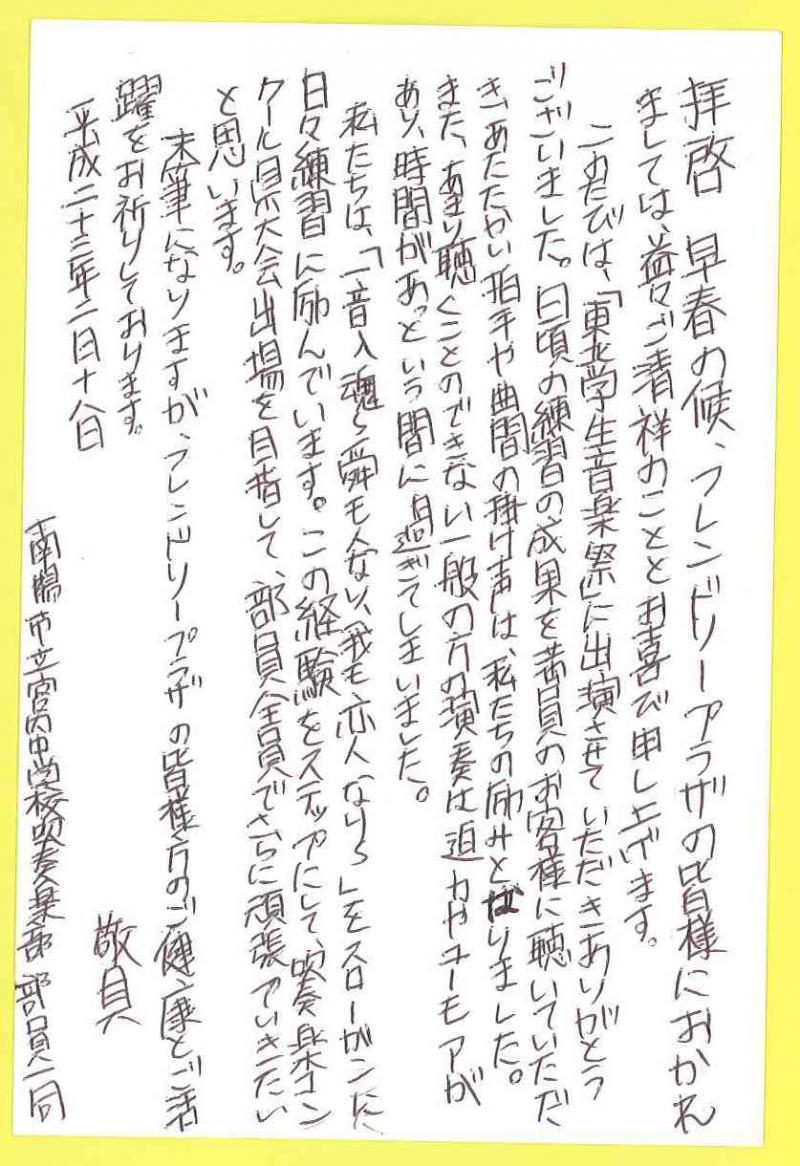 拝啓 早春の候、フレンドリープラザの皆様におかれ
ましては、益々ご清祥のこととお喜び申し上げます。
このたびは、「東北学生音楽祭」に出演させていただきありがとう
ございました。日頃の練習の成果を満員のお客様に聴いていただ
き、あたたかい拍手や曲間の掛け声は、私たちの励みとなりました。
また、あまり聴くことのできない一般の方の演奏は迫力やユーモアが
あり、時間があっという間に過ぎてしまいました。
私たちは、「一音入魂〜舜も人なり、我も亦人なり〜」をスローガンに
日々練習に励んでいます。この経験をステップにして、吹奏楽コン
クール県大会出場を目指して、部員全員でさらに頑張っていきたい
と思います。
末筆になりますが、フレンドリープラザの皆様方のご健康とご活
躍をお祈りしております。
敬具
平成二十三年二月十八日
南陽市立宮内中学校吹奏楽部 部員一同